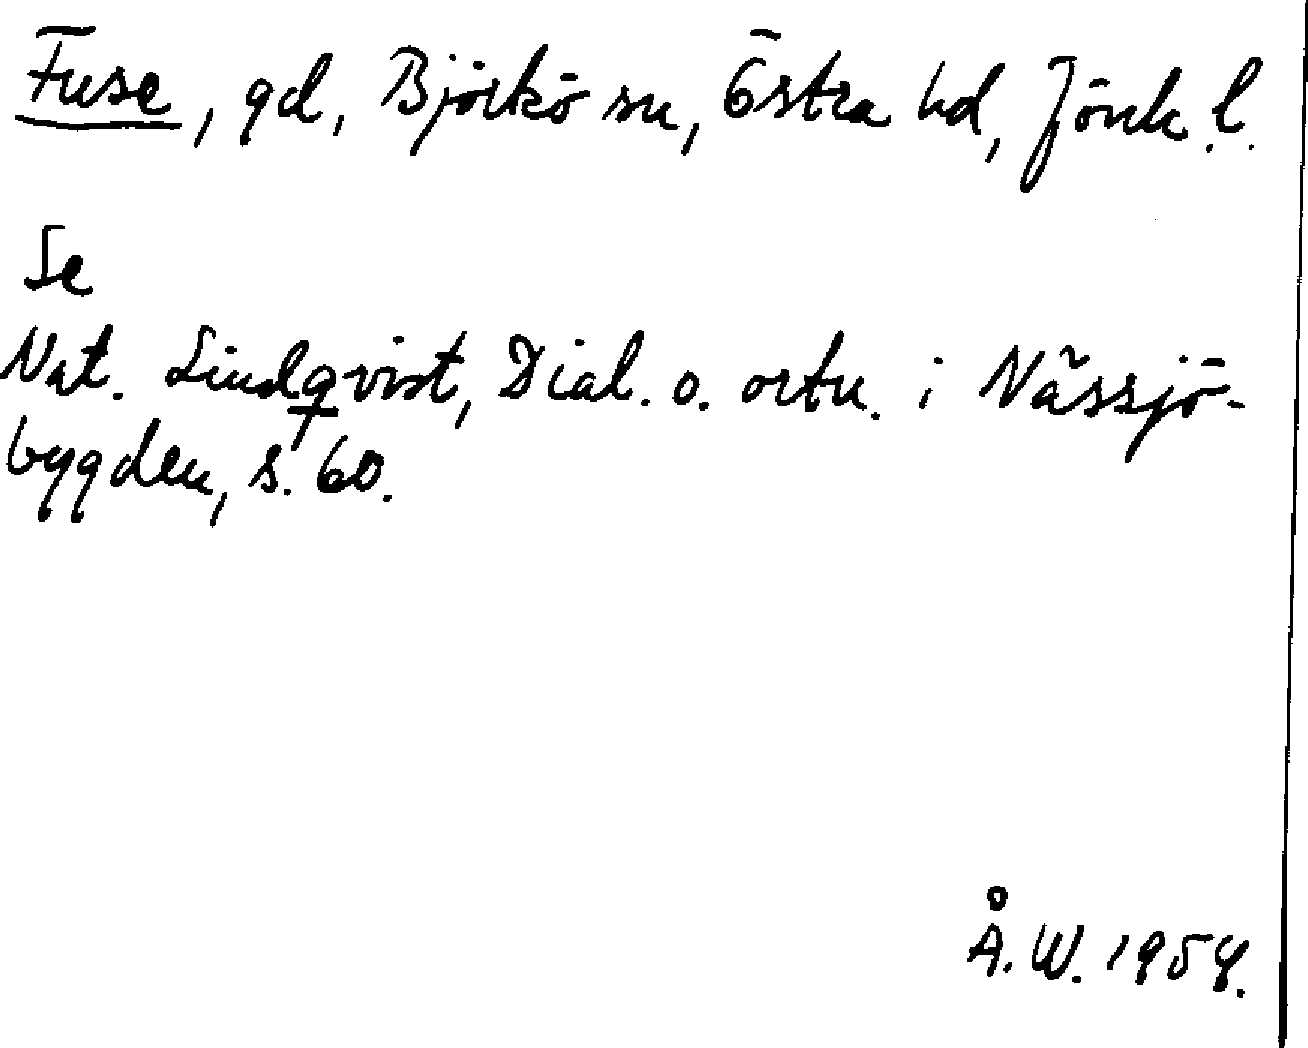 Fuse, gd, Björkö sn, Östra hd, Jönk.l.
Se
Nat. Lindqvist, Dial. o. ortn. i Nässjö-
bygden, s. 60.
Å.W. 1954.